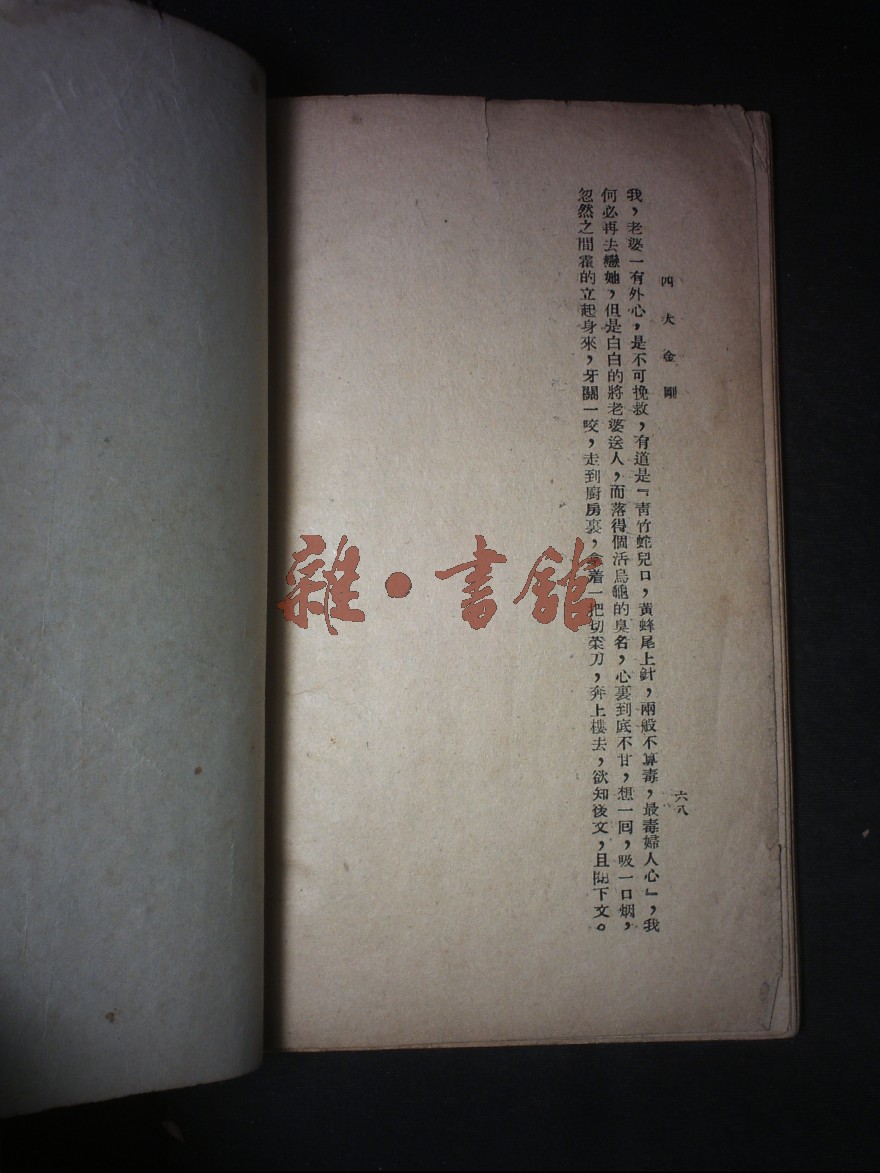 四大金剛
六八
我，老婆一有外心，是不可挽救，有道是『靑竹蛇兒口，黃蜂尾上針，兩般不算毒，最毒婦人心』，我
何必再去戀她，但是白白的將老婆送人，而落得個活烏龜的臭名，心裏到底不甘，想一回，吸一口烟，
忽然之間霍的立起身來，牙關一咬，走到廚房裏，拿着一把切菜刀，奔上樓去，欲知後文，且閱下文。
雜·書館